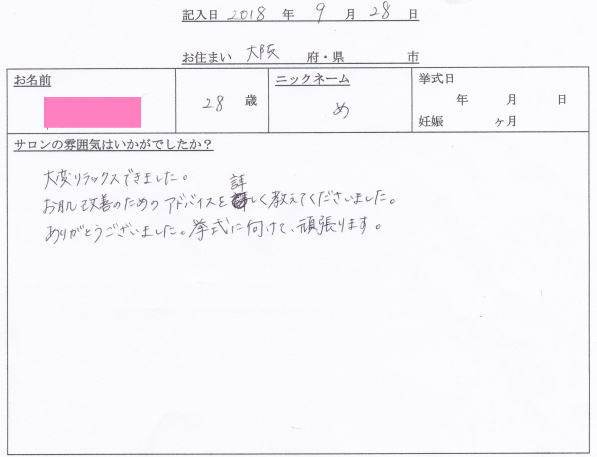 記入日 2018 年 9 月 28 日
お住まい 大阪 府・県 市
お名前
28 歳
ニックネーム
め
挙式日
年 月 日
妊娠 ヶ月
サロンの雰囲気はいかがでしたか？
大変リラックスできました。
お肌改善のためのアドバイスを詳しく教えてくださいました。
ありがとうございました。挙式に向けて、頑張ります。